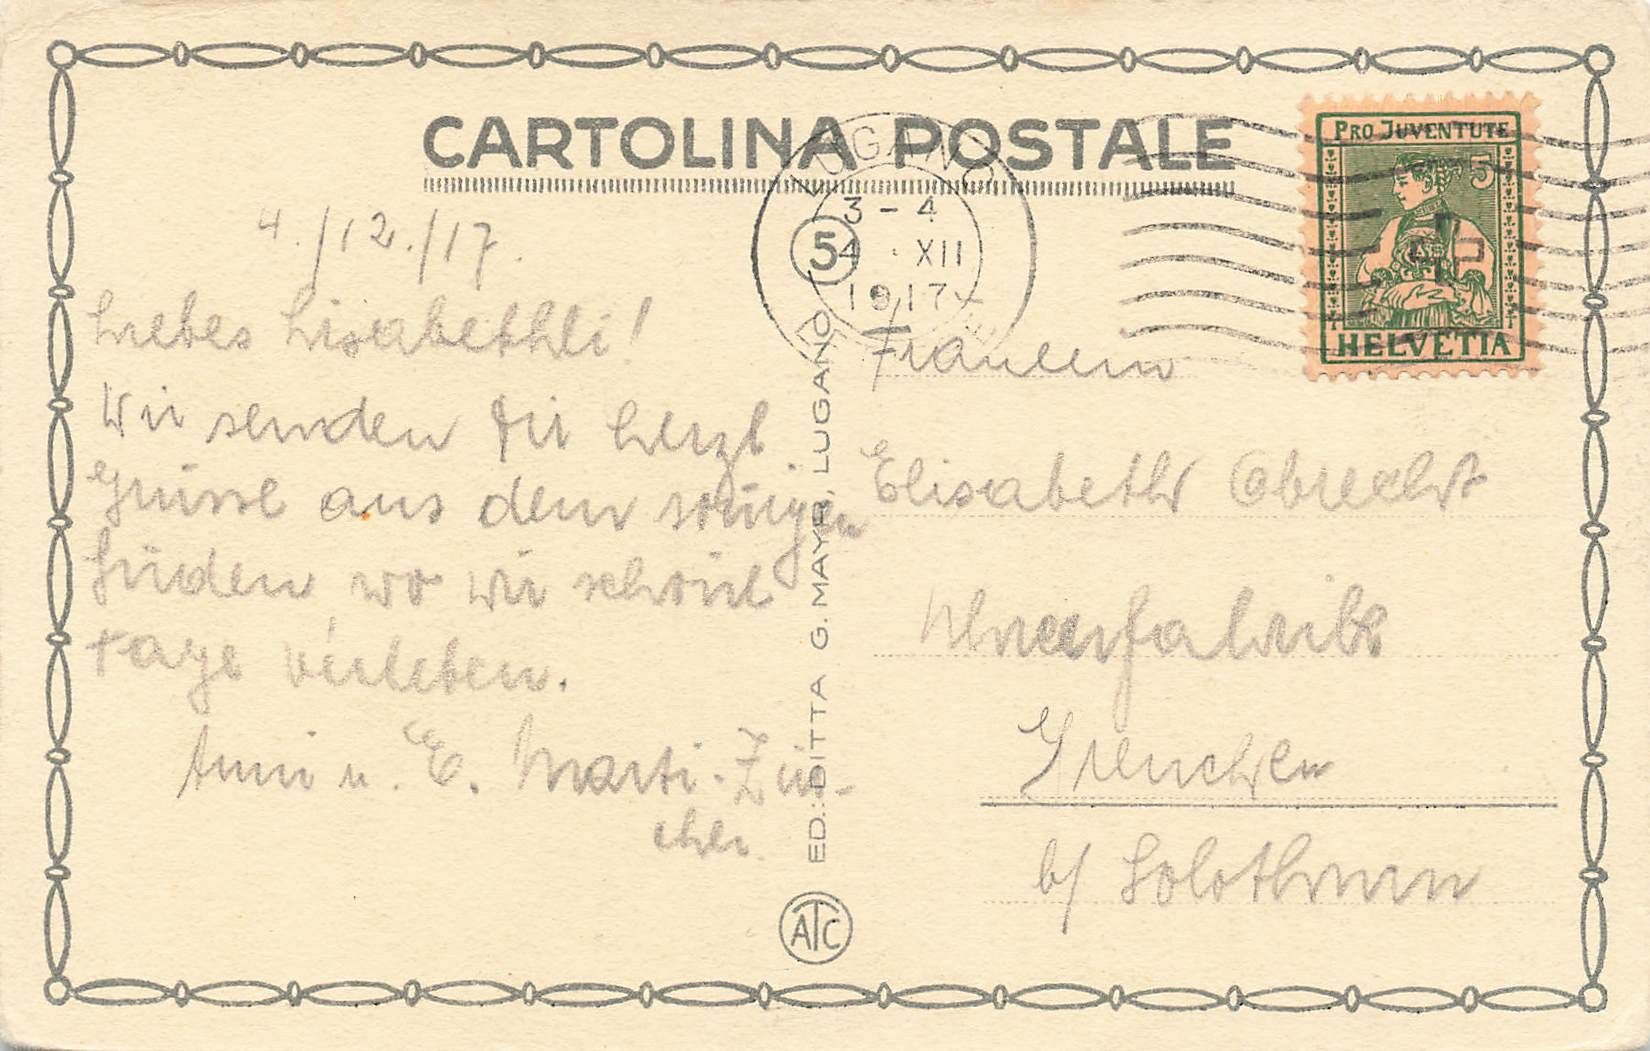 CARTOLINA POSTALE
LUGANO
3-4
4. XII
1917
5
PRO JUVENTUTE
5
HELVETIA
4./12./17.
Liebes Lisabethli!
Wir senden Dir herzl
Grüsse aus dem sonnigen
Süden, wo wir schöne
Tage verleben.
Anni u. E. Marti-Zür-
cher.
ED.: DITTA G. MAYR, LUGANO
ATC
Fräulein
Elisabeth Obrecht
Uhrenfabrik
Grenchen
b/ Solothurn